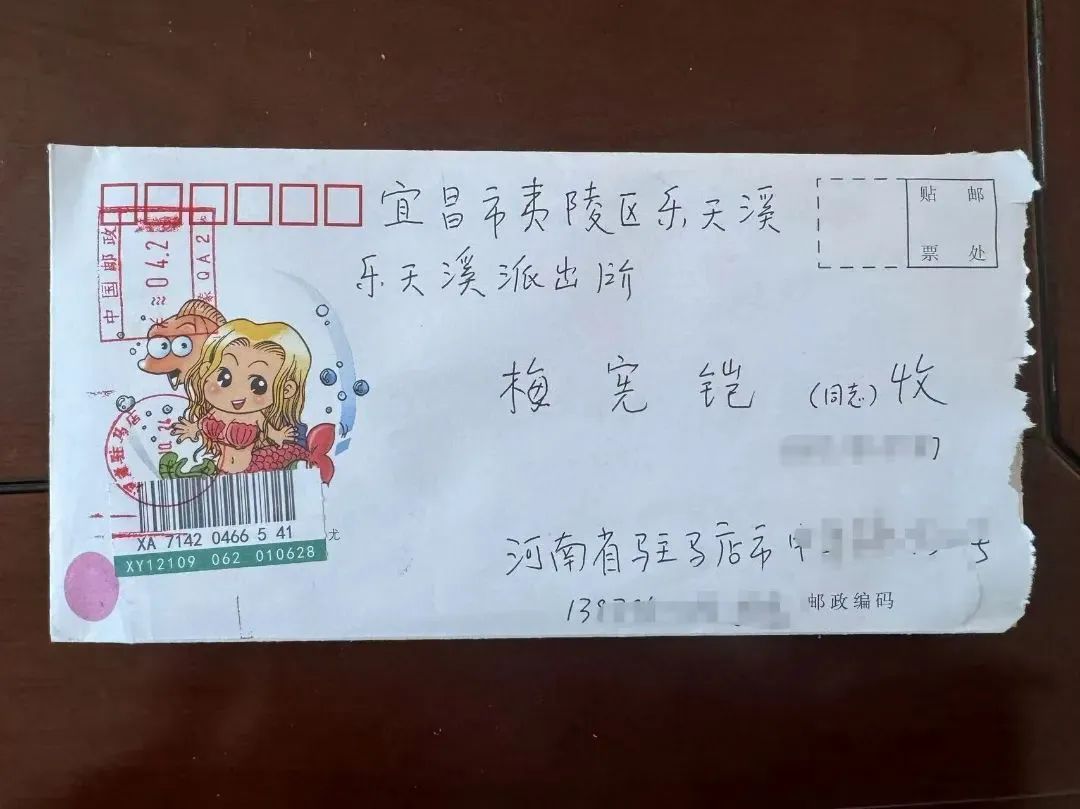 宜昌市夷陵区乐天溪
乐天溪派出所
贴 邮
票 处
梅宪铠(同志)收
河南省驻马店市
邮政编码
中国邮政
04.2
驻马店
XA 7142 0466 5 41
XY12109 062 010628
尤